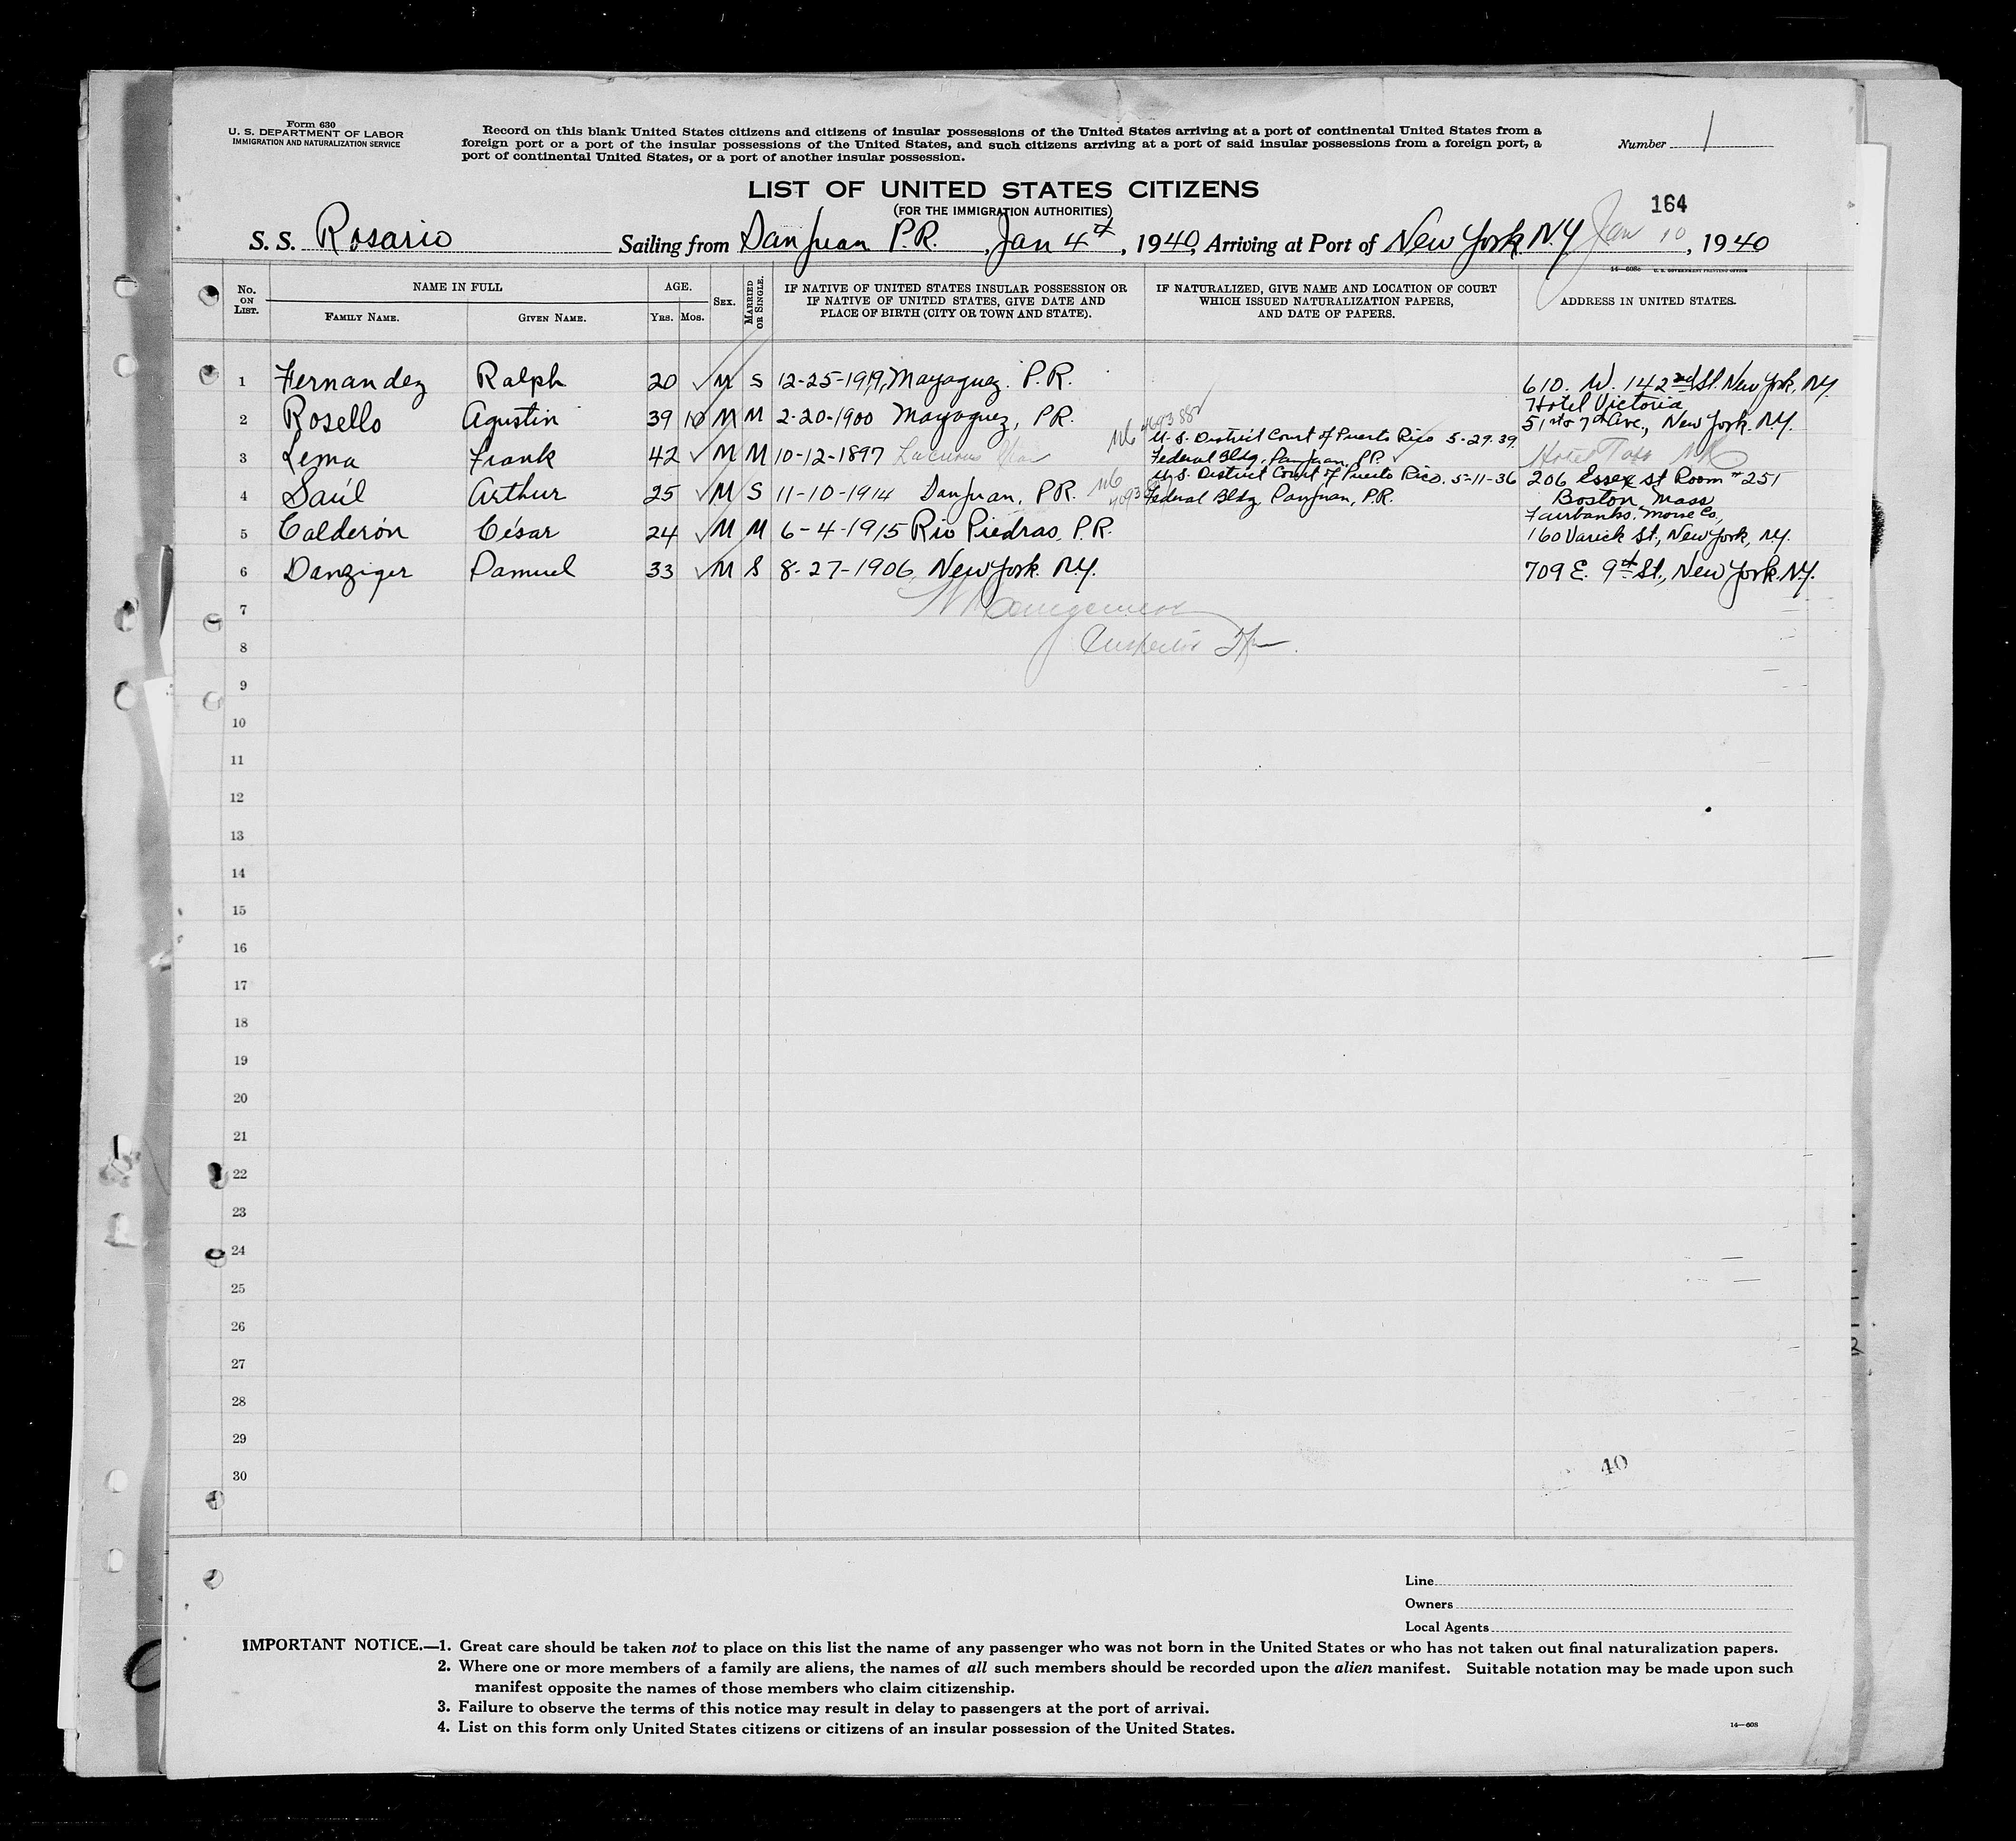 Form 630
U. S. DEPARTMENT OF LABOR
IMMIGRATION AND NATURALIZATION SERVICE
Record on this blank United States citizens and citizens of insular possessions of the United States arriving at a port of continental United States from a
foreign port or a port of the insular possessions of the United States, and such citizens arriving at a port of said insular possessions from a foreign port, a
port of continental United States, or a port of another insular possession.
Number 1
LIST OF UNITED STATES CITIZENS
(FOR THE IMMIGRATION AUTHORITIES)
164
S. S. Rosario Sailing from San Juan P.R., Jan 4th, 1940, Arriving at Port of New York N.Y. Jan 10, 1940
14—608c U. S. GOVERNMENT PRINTING OFFICE
No. ON LIST. NAME IN FULL AGE. SEX. MARRIED OR SINGLE. IF NATIVE OF UNITED STATES INSULAR POSSESSION OR IF NATIVE OF UNITED STATES, GIVE DATE AND PLACE OF BIRTH (CITY OR TOWN AND STATE). IF NATURALIZED, GIVE NAME AND LOCATION OF COURT WHICH ISSUED NATURALIZATION PAPERS, AND DATE OF PAPERS. ADDRESS IN UNITED STATES.
FAMILY NAME. GIVEN NAME. YRS. MOS.
1 Fernandez Ralph 20 M S 12-25-1919, Mayaguez. P.R. 610. W. 142nd St. New York, N.Y.
Hotel Victoria
2 Rosello Agustin 39 10 M M 2-20-1900 Mayaguez, P.R. 51st & 7th Ave., New York. N.Y.
U.S. District Court of Puerto Rico 5-29-39
3 Lema Frank 42 M M 10-12-1897 Federal Bldg, San Juan, P.R. Hotel Taft
U.S. District Court of Puerto Rico. 5-11-36
4 Saúl Arthur 25 M S 11-10-1914 San Juan, P.R. Federal Bldg San Juan, P.R. 206 Essex St Room #251
Boston, Mass
Fairbanks. Morse Co,
5 Calderón César 24 M M 6-4-1915 Rio Piedras, P.R. 160 Varick St., New York, N.Y.
6 Danziger Samuel 33 M S 8-27-1906, New York. N.Y. 709 E. 9th St., New York. N.Y.
7
8 Inspector
9
10
11
12
13
14
15
16
17
18
19
20
21
22
23
24
25
26
27
28
29
30
40
Line
Owners
Local Agents
IMPORTANT NOTICE.—1. Great care should be taken not to place on this list the name of any passenger who was not born in the United States or who has not taken out final naturalization papers.
2. Where one or more members of a family are aliens, the names of all such members should be recorded upon the alien manifest. Suitable notation may be made upon such
manifest opposite the names of those members who claim citizenship.
3. Failure to observe the terms of this notice may result in delay to passengers at the port of arrival.
4. List on this form only United States citizens or citizens of an insular possession of the United States.
14—608